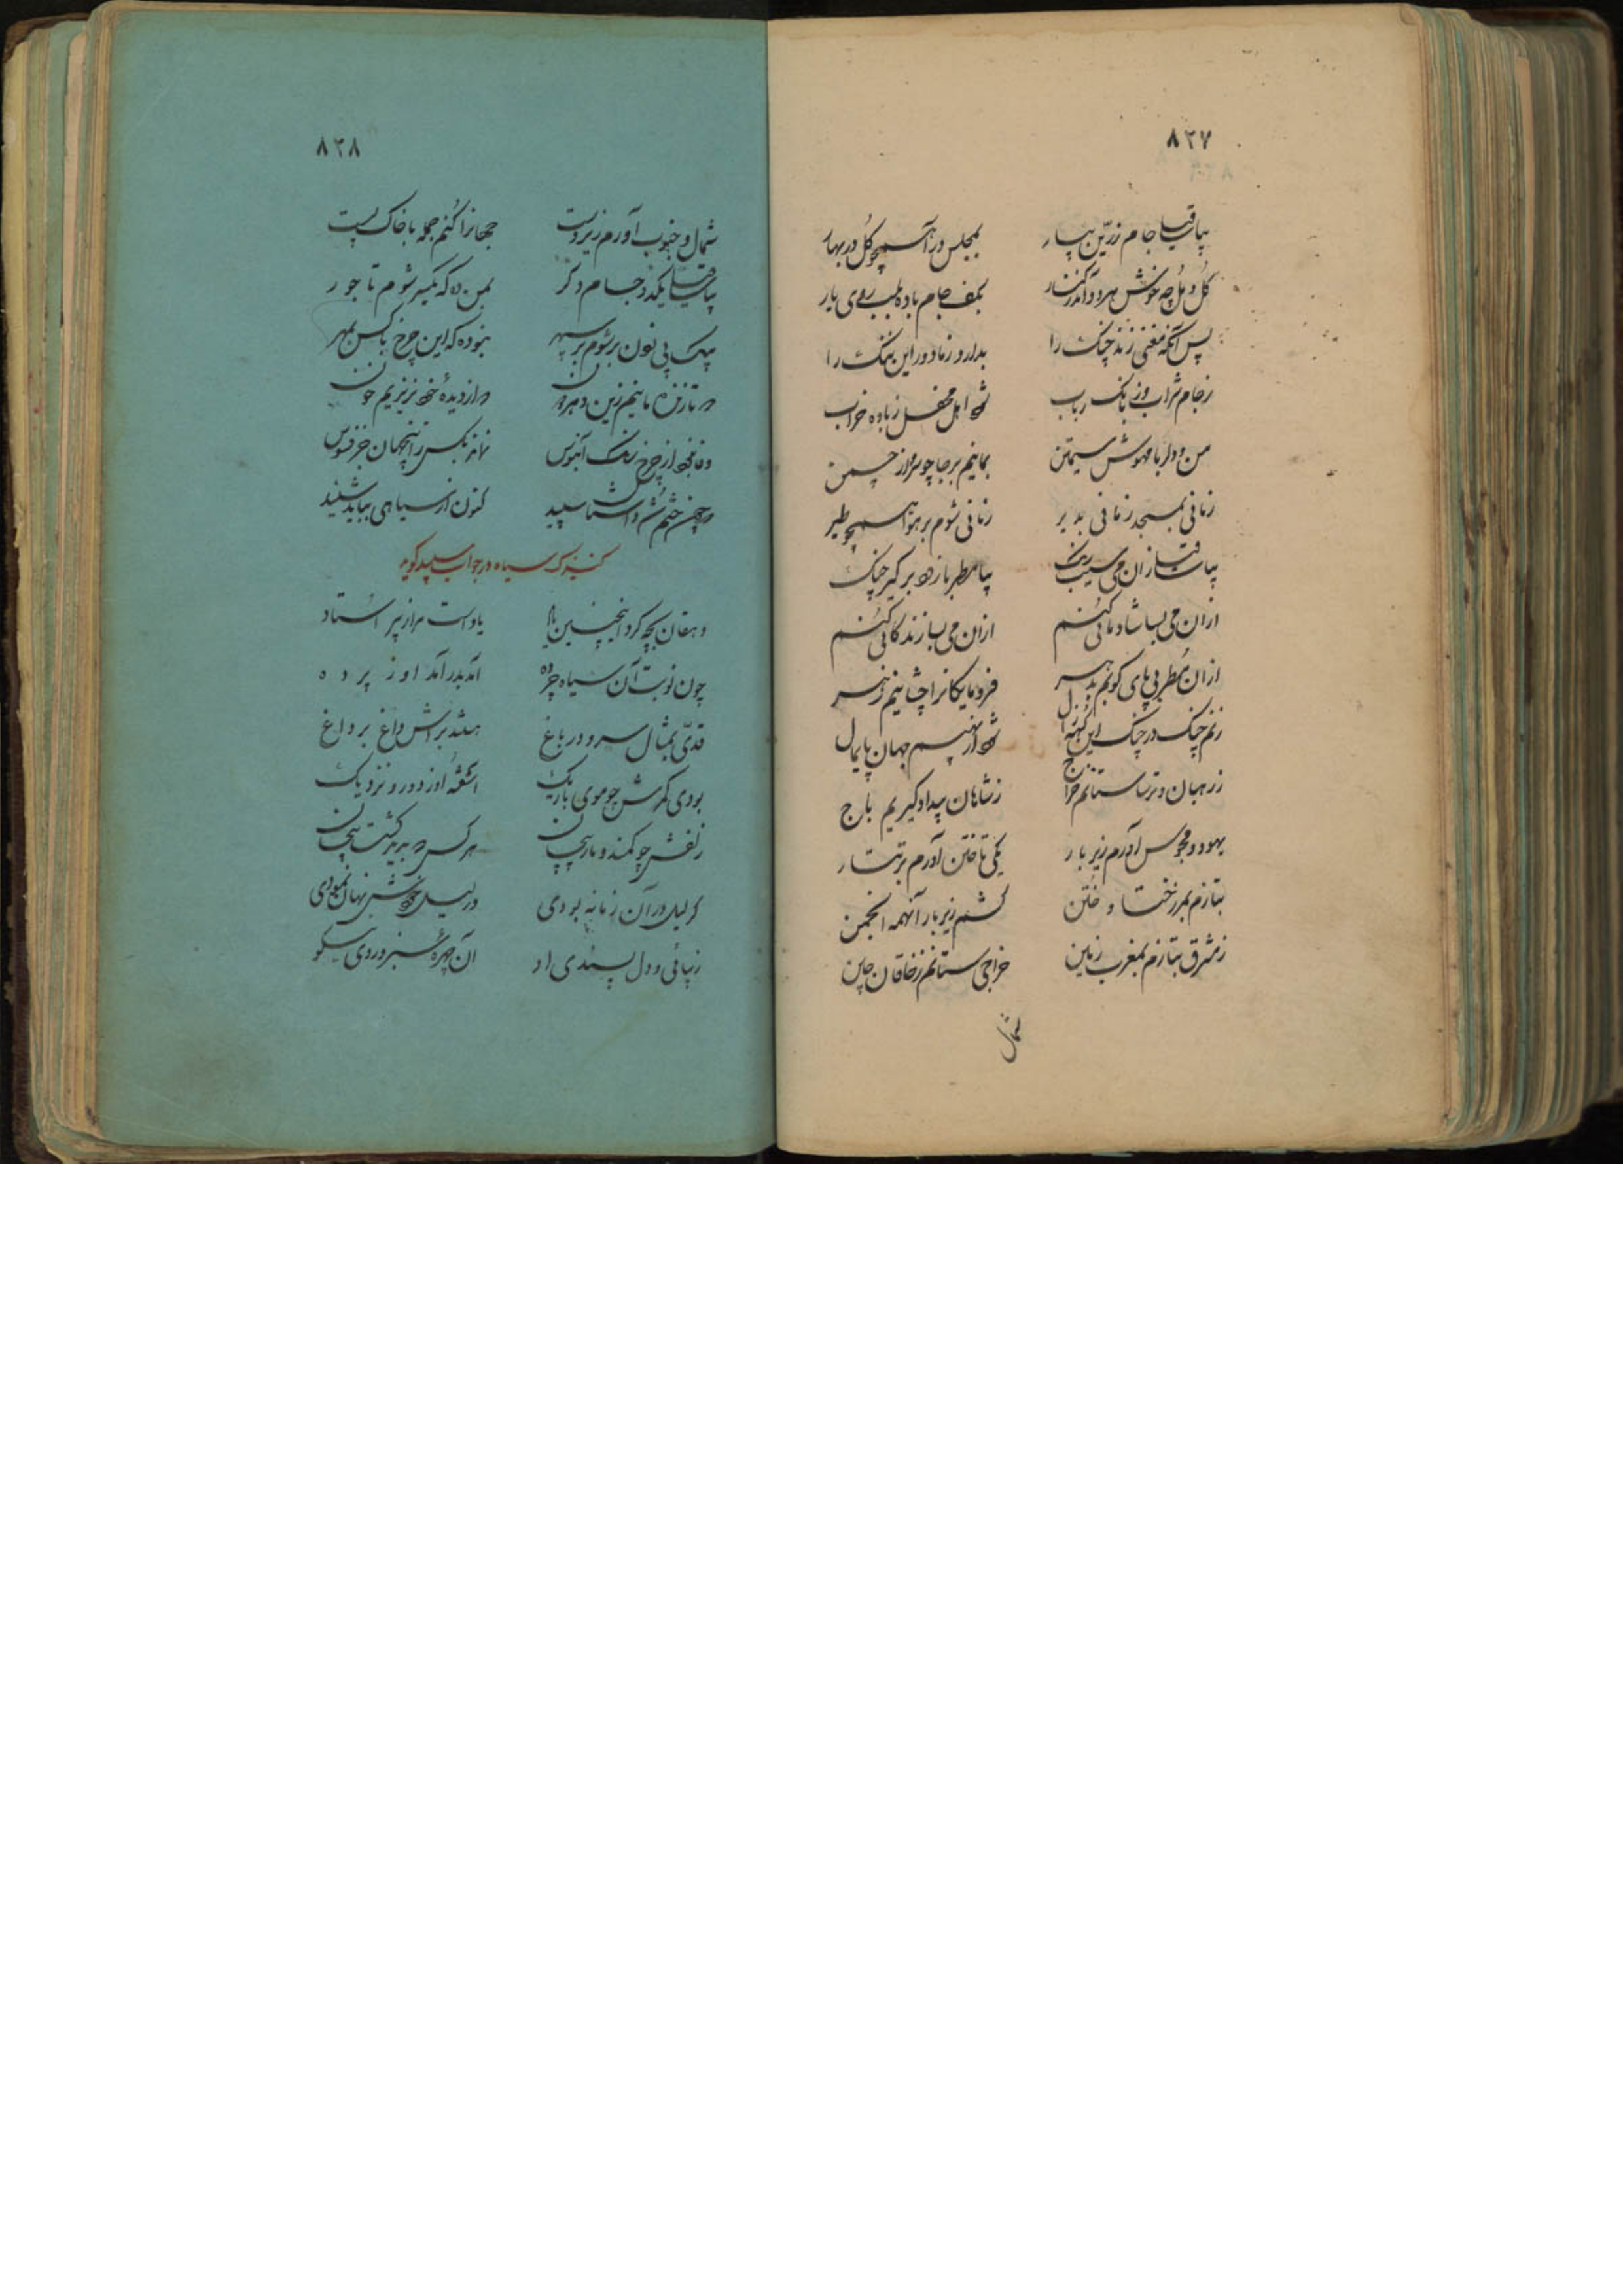 ۸۲۷
بیا ساقیا جام زرین بیار بمجلس درآ همچو گل در بهار
گل و مل چه خوش هر دو آمد در کنار بکف جام باده بلب روی یار
پس آنگه مغنی زند چنک را بدارو زماد و راین ننک را
ز جام شراب و ز بانک رباب شود اهل محفل ز باده خراب
من و دلربا مهوش سیمتن بمانیم برجا چو سرو از چمن
زمانی بمسجد زمانی بدیر زمانی شوم بر هوا همچو طیر
بیا ساقیا زان می بیا مطرب تازه برگیر چنک
ازان می بسا شادمانی کنم ازان می بسا زندکانی کنم
ازان مطربی پای کوبم بدهر فرومایکانرا چشانیم زهر
زنم چنک در چنک این کهنه زال شود از نهیبم جهان پایمال
ز رهبان و ترسا ستانم خراج ز شاهان بیداد گیریم باج
یهود و مجوس آورم زیر بار یکی تاختن آورم بر تتار
بتازم بمرز ختا و ختن کشم زیر بار آنهمه انجمن
ز مشرق بتازم بمغرب زمین خراجی ستانم ز خاقان چین
شمال
۸۲۸
شمال و جنوب آورم زیر دست جهانرا کنم جمله با خاک پست
بیا ساقیا یکدو جام دکر بمن ده که یکسر شوم تا جور
بیک پی نون بر شوم بر سپهر نبوده که این چرخ با کس بمهر
در تازه مانیم زین دهر دون در از دیده خود بریزیم خون
وفا نجو از چرخ رنک آبنوس نماند بکس زینجهان جز فسوس
سخن ختم شد داستان سپید کنون از سیاهی بباید شنید
کنیزک سیاه در جواب سپید کوید
دهقان بچه کرد اینچنین یاد است مرا ز پیر استاد
چون نوبت آن سیاه چرده آمد بدر آمد او ز پرده
قدی بمثال سرو در باغ هشته برش داغ بر داغ
بودی کمرش چو موی باریک آشفته او ز دور و نزدیک
زلفش چو کمند و مار پیچان هر کس که بدید گشت پیچان
کر لیلی در آن زمانه بودی در لیل خودش نهان نمودی
زیبائی و دل پسندی او آن چهره سبز و روی نیکو